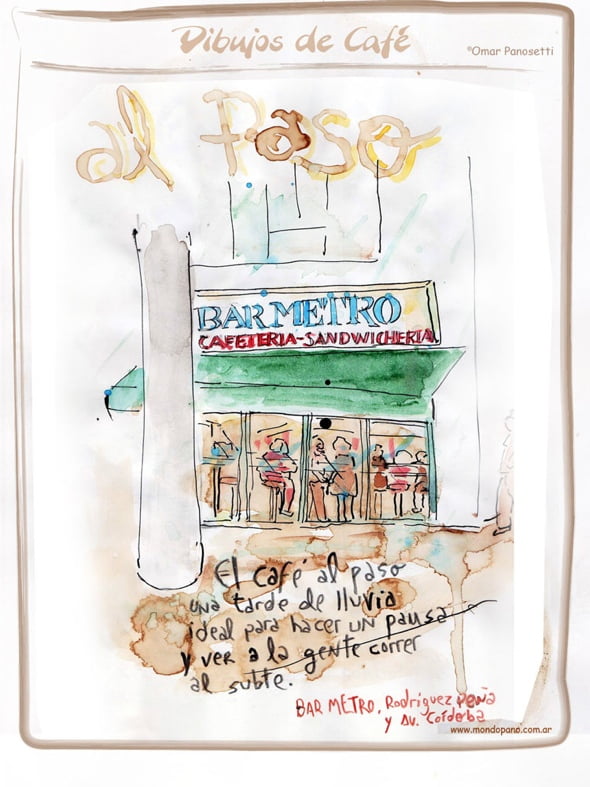 Dibujos de Café
©Omar Panosetti
al Paso
BAR METRO
CAFETERIA-SANDWICHERIA
El café al paso
una tarde de lluvia
ideal para hacer un pausa
y ver a la gente correr
al subte.
BAR METRO, Rodriguez Peña
y Av. Córdoba
www.mondopano.com.ar